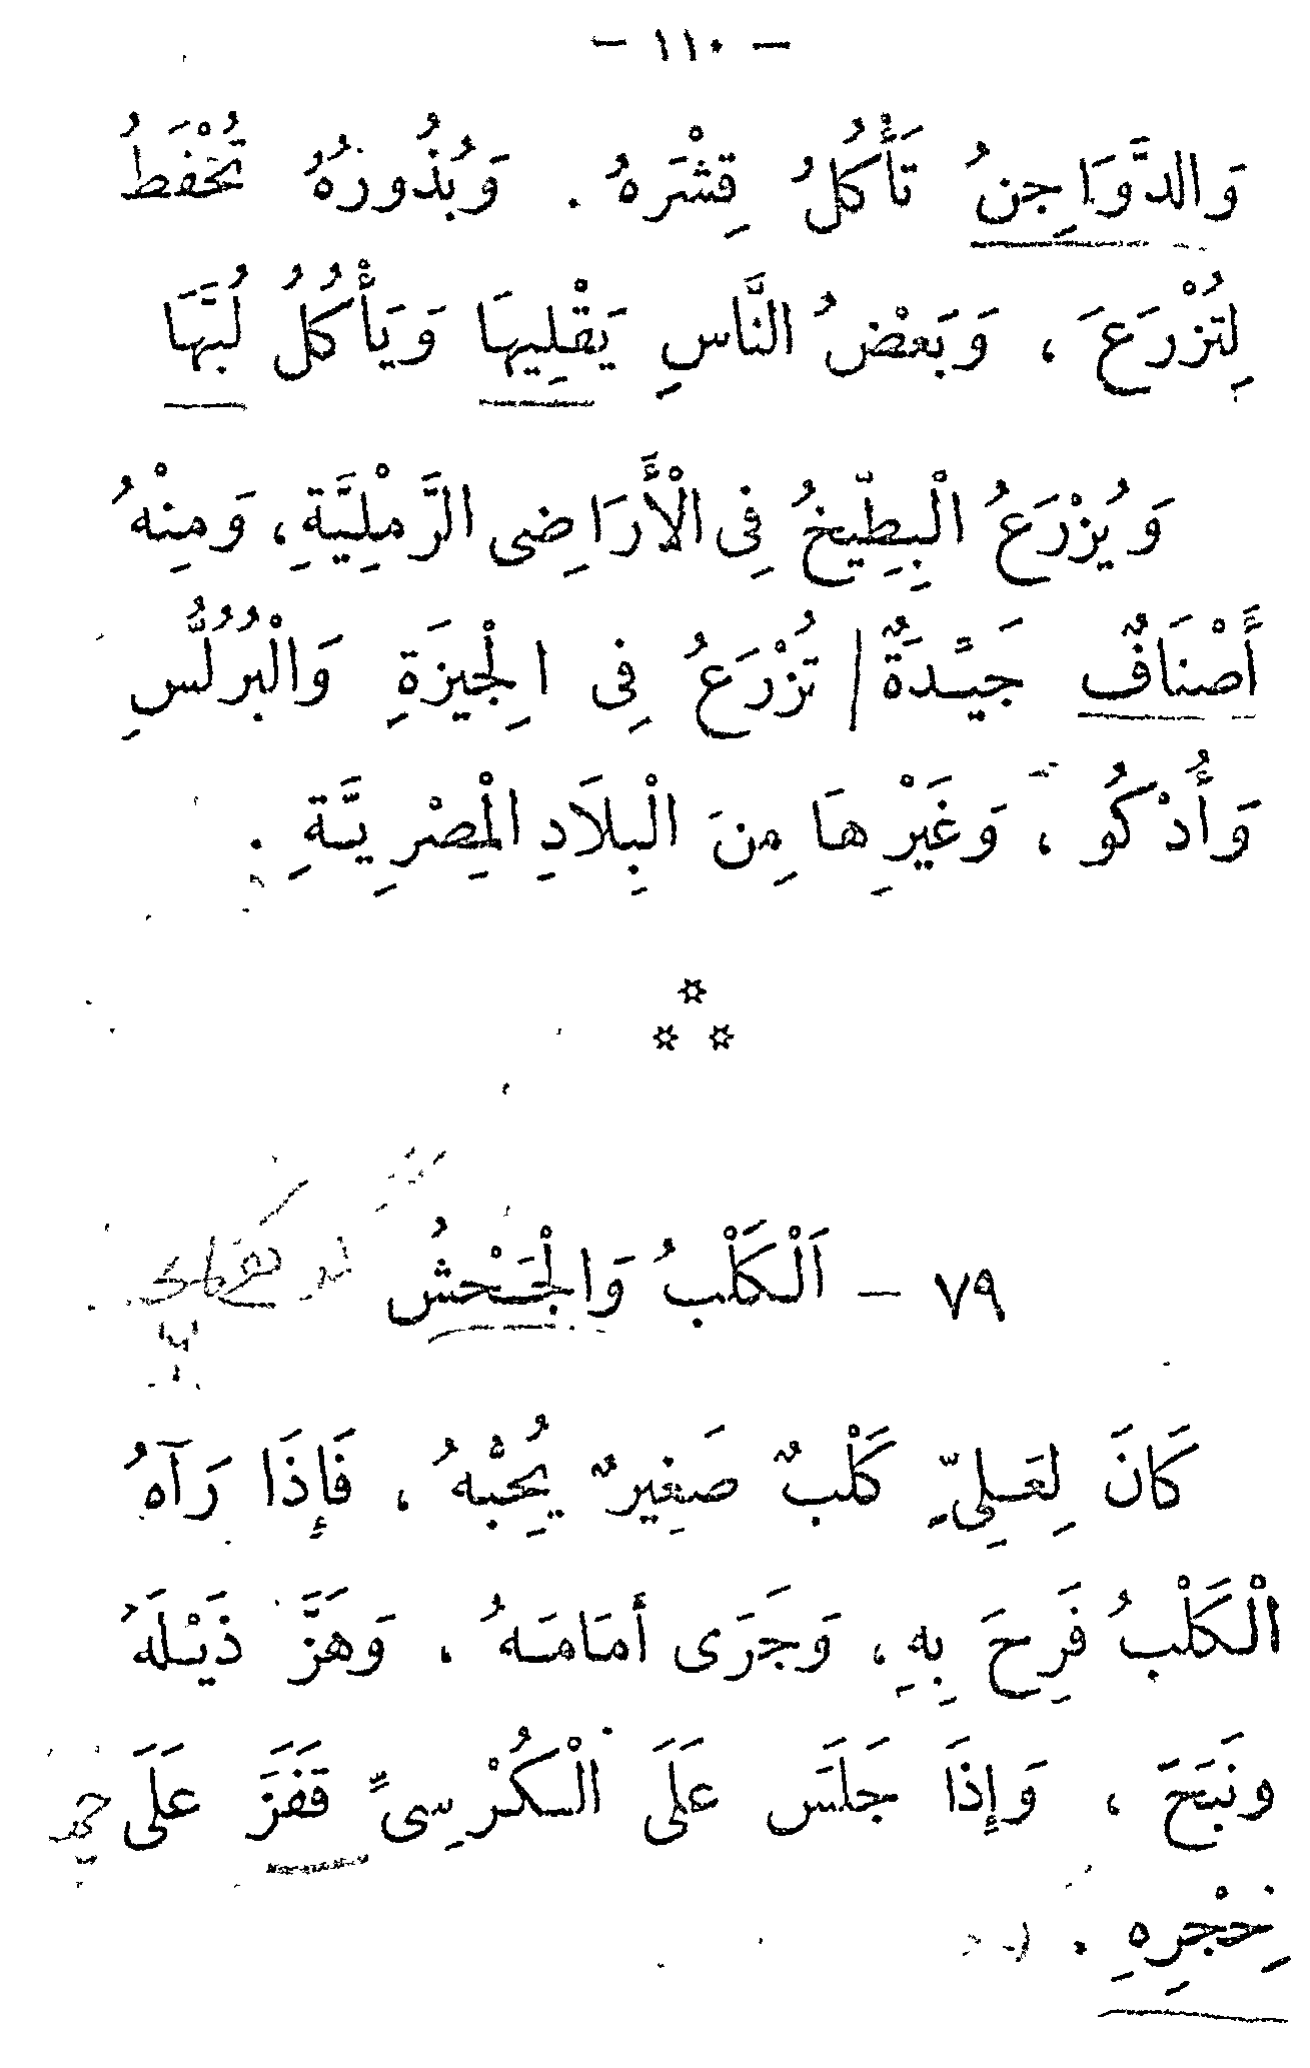 — ١١٠ —
وَالدَّوَاجِنُ تَأْكُلُ قِشْرَهُ . وَبُذُورُهُ تُحْفَظُ
لِتُزْرَعَ ، وَبَعْضُ النَّاسِ يَقْلِيهَا وَيَأْكُلُ لُبَّهَا
وَيُزْرَعُ الْبِطِّيخُ فِى الْأَرَاضِى الرَّمْلِيَّةِ ، وَمِنْهُ
أَصْنَافٌ جَيِّدَةٌ / تُزْرَعُ فِى الْجِيزَةِ وَالْبُرُلُّسِ
وَأُدْكُو ، وَغَيْرِهَا مِنَ الْبِلَادِ الْمِصْرِيَّةِ .
٧٩ — اَلْكَلْبُ وَالْجَحْشُ
كَانَ لِعَلِىٍّ كَلْبٌ صَغِيرٌ يُحِبُّهُ ، فَإِذَا رَآهُ
الْكَلْبُ فَرِحَ بِهِ ، وَجَرَى أَمَامَهُ ، وَهَزَّ ذَيْلَهُ
ونَبَحَ ، وَإِذَا جَلَسَ عَلَى الْكُرْسِىِّ قَفَزَ عَلَى
حِجْرِهِ .